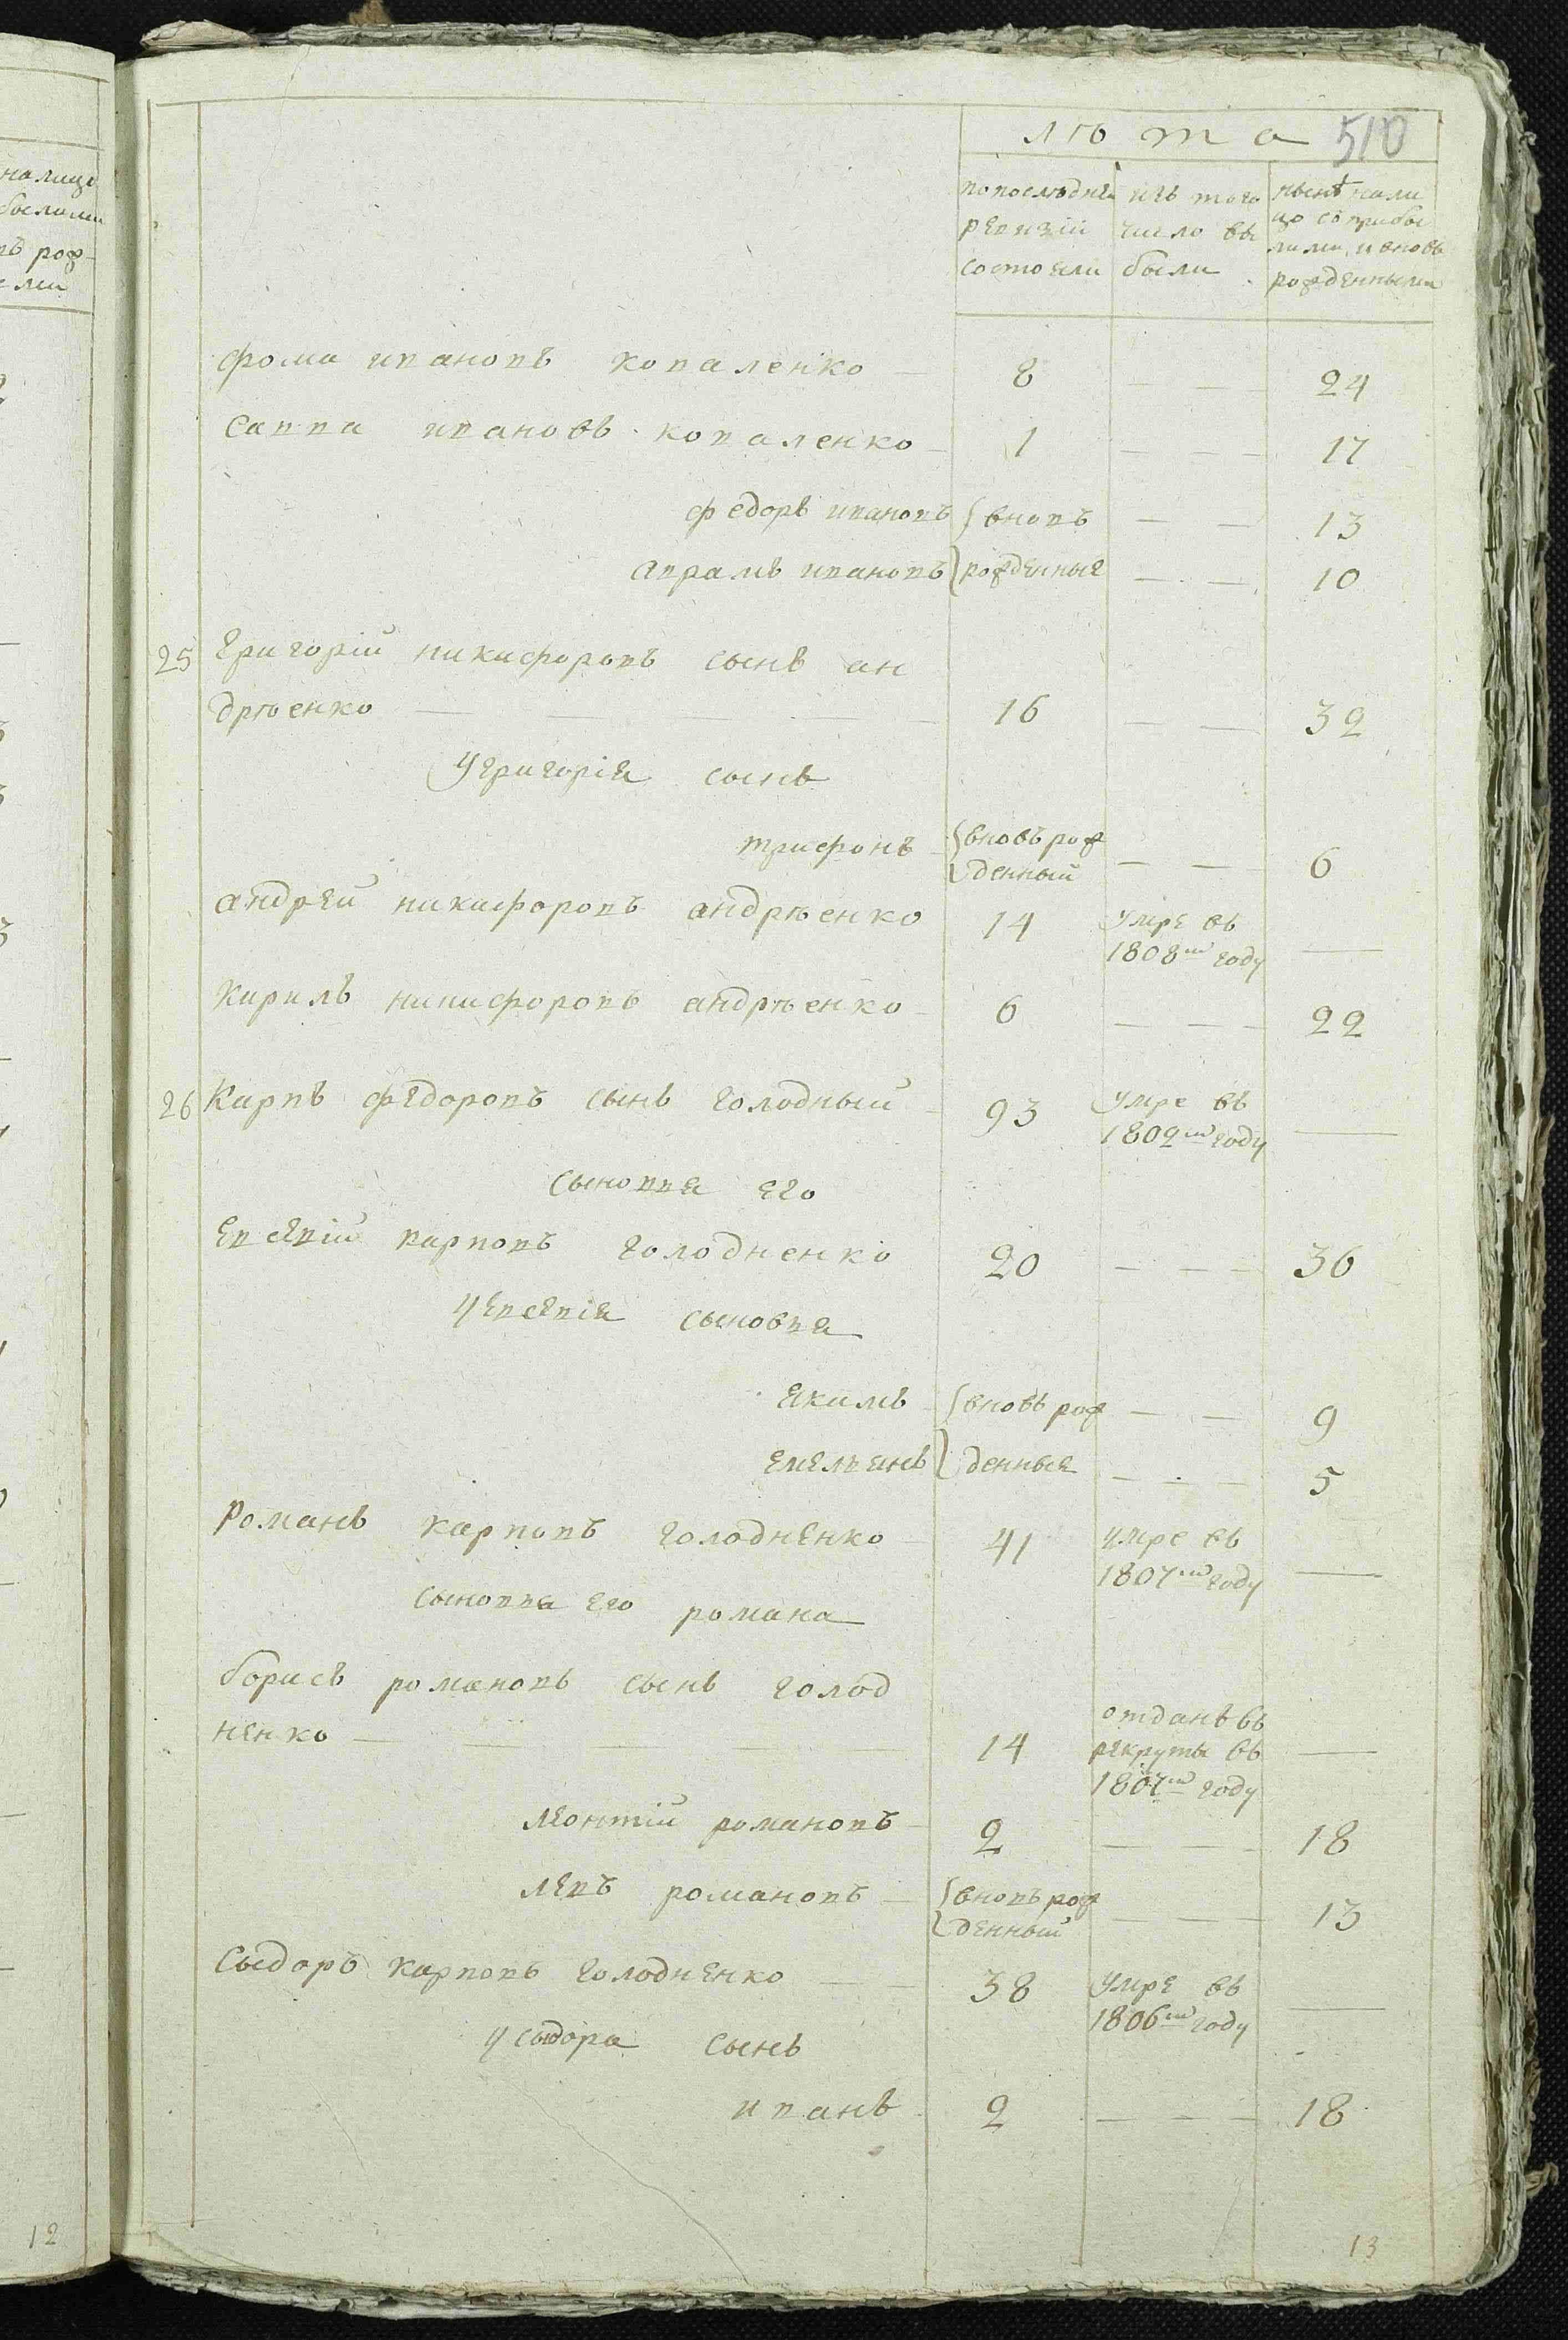 лѣта 510
попослѣдней
ревизіи
состояли
изъ того
число вы
были
нынѣ нали
цо соприбы
лыми, и вновь
рожденными
Фома ивановъ коваленко — 8 — — 24
Савва ивановъ коваленко — 1 — — — 17
федоръ ивановъ вновь — — 13
аврамъ ивановъ рожденные — — 10
25 Григорій никифоровъ сынъ ан
дрѣенко — — — — — 16 — — 32
Угригорія сынъ
трифонъ вновь рож
денный — — 6
андрей никифоровъ андрѣенко 14 умре въ
1808м году —
Кирилъ никифоровъ андрѣенко — 6 — — — 22
26 Карпъ федоровъ сынъ голодный — 93 умре въ
1802м году —
сыновья его
Евсевій карповъ голодненко 20 — — — 36
Уевсевія сыновья
якимъ вновь рож — — 9
емельянъ денные — — — 5
Романъ карповъ голодненко — 41 умре въ
1807м году —
сыновья его романа
борисъ романовъ сынъ голод
ненко — — — — — 14 отданъ въ
рекруты въ —
1807м году
леонтій романовъ — 2 — — — 18
левъ романовъ — вновь рож
денный — — — 13
Сыдоръ карповъ голодненко — — 38 умре въ
1806м году —
усыдора сынъ
иванъ 2 — — — 18
13
налицо
былыми
ъ рож
ми
12